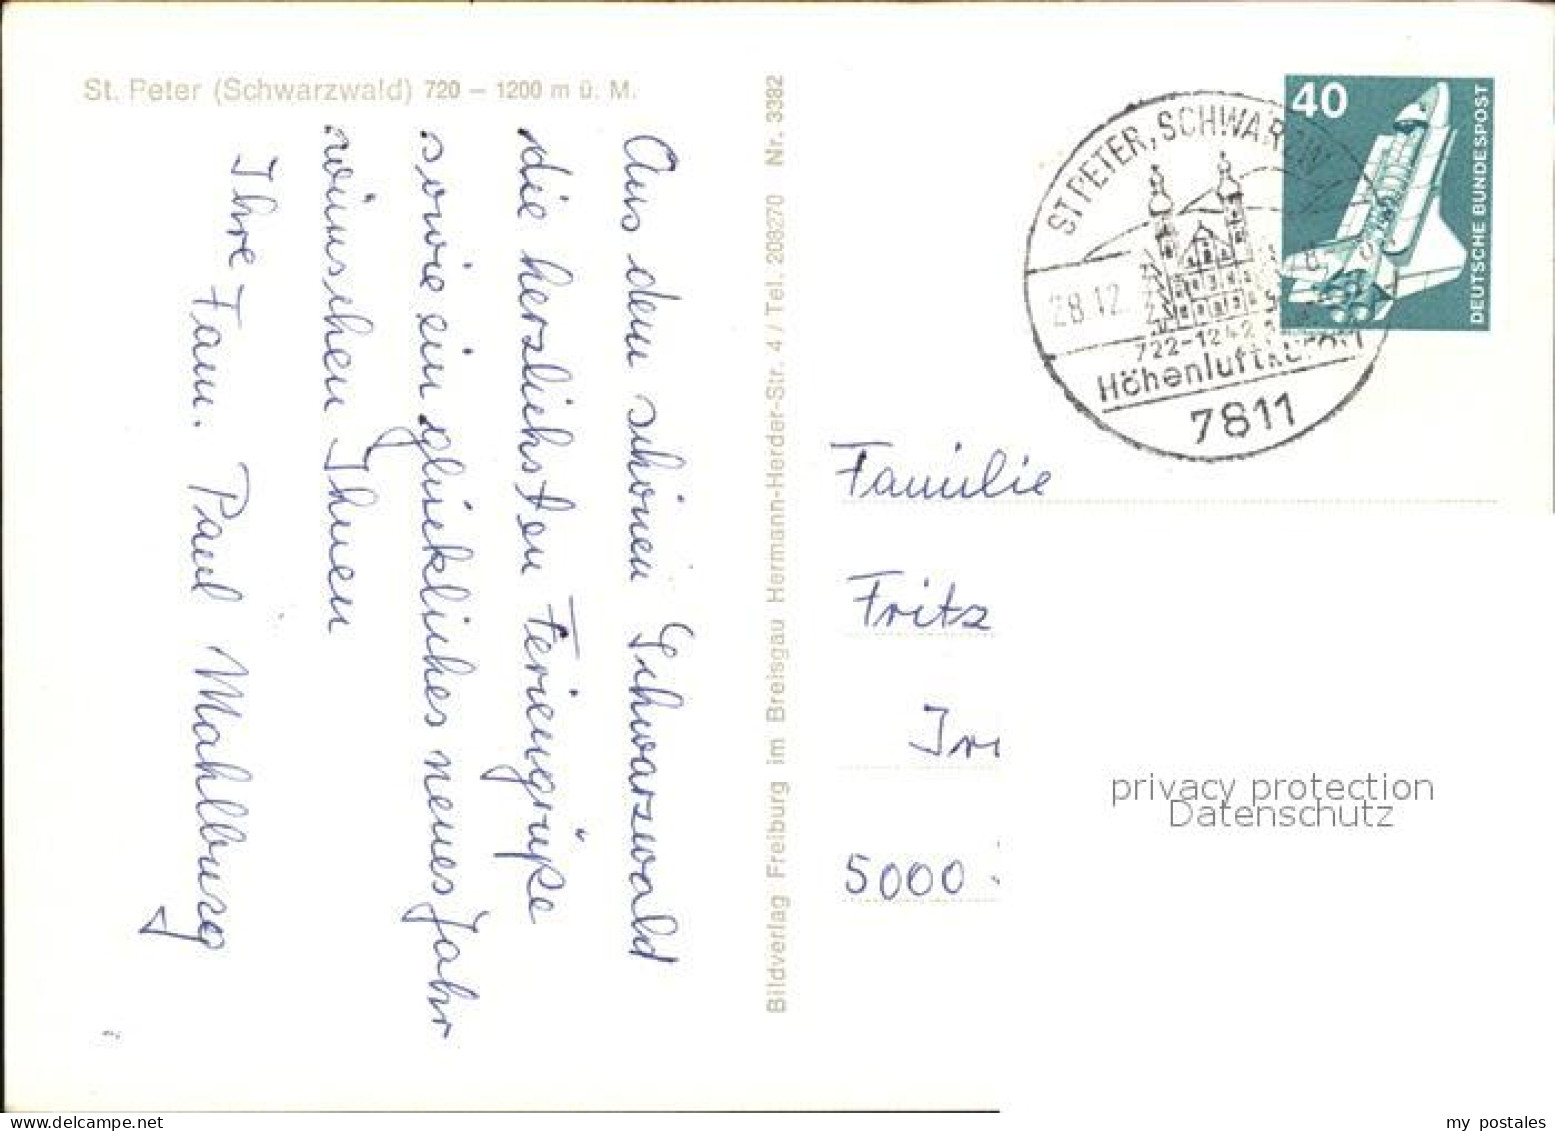 St. Peter (Schwarzwald) 720 – 1200 m ü. M.
Aus dem schönen Schwarzwald
die herzlichsten Feriengrüße
sowie ein glückliches neues Jahr
wünschen Ihnen
Ihre Fam. Paul Mahlburg
Bildverlag Freiburg im Breisgau Hermann-Herder-Str. 4 / Tel. 208270 Nr. 3382
ST PETER, SCHWARZW
28.12.
722-1242
Höhenluftkurort
7811
40
DEUTSCHE BUNDESPOST
Familie
Fritz
5000
privacy protection
Datenschutz
my postales